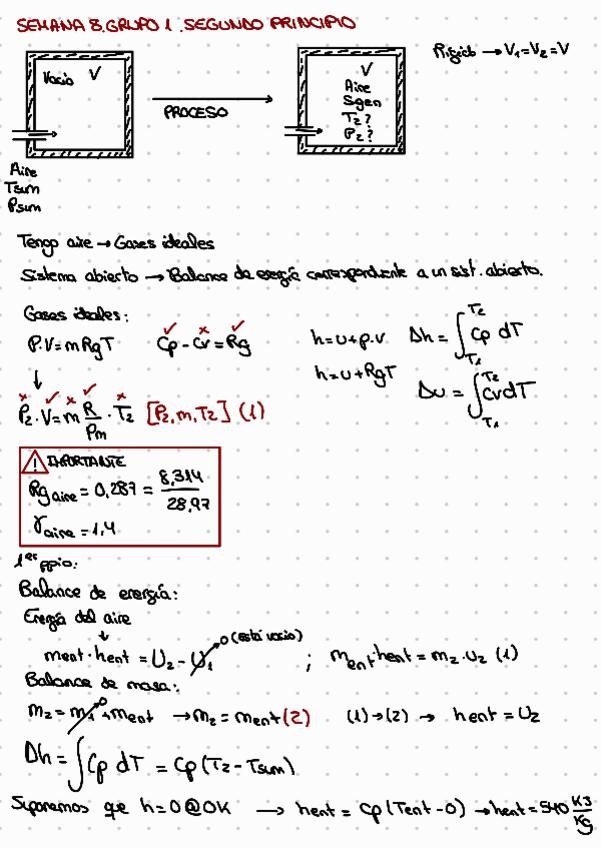 SEMANA 8. GRUPO 1. SEGUNDO PRINCIPIO
Rígido → V₁=V₂=V
Vacío V
PROCESO
V
Aire
Sgen
T₂?
P₂?
Aire
Tsum
Psum
Tengo aire → Gases ideales
Sistema abierto → Balance de energía correspondiente a un sist. abierto.
Gases ideales:
P·V=mRgT
Cp - Cv = Rg
h=u+p.v
Δh = ∫_{T₁}^{T₂} Cp dT
h=u+RgT
Δu = ∫_{T₁}^{T₂} Cv dT
P₂·V=m R/Pm · T₂ [P₂,m,T₂] (1)
⚠ IMPORTANTE
Rg aire = 0,287 = 8,314/28,97
γ aire = 1,4
1er ppio:
Balance de energía:
Energía del aire
ment·hent = U₂ - U₁ 0 (está vacío) ; ment·hent = m₂·u₂ (1)
Balance de masa:
m₂ = m₁ 0 + ment → m₂ = ment (2) (1)→(2) → hent = U₂
Δh = ∫ Cp dT = Cp (T₂ - Tsum)
Suponemos que h=0 @ 0K → hent = Cp (Tent - 0) → hent = 540 KJ/Kg